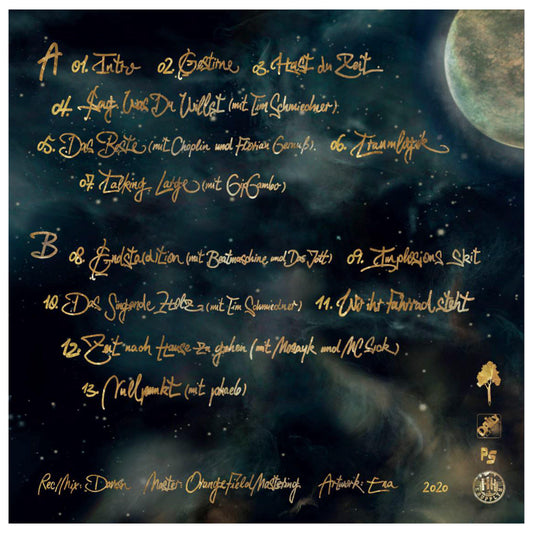 A 01. Intro 02. Gestirne 03. Hast du Zeit
04. Sag Was Du Willst (mit Tim Schmiedner)
05. Das Beste (mit Choplin und Florian Gernuß). 06. Traumlogik
07. Talking Large (mit GipGambo)
B 08. Endsta(d)tion (mit Beatmaschine und Das Jott) 09. Implosions Skit
10. Das Singende Holz (mit Tim Schmiedner) 11. Wo ihr Fahrrad steht
12. Zeit nach Hause zu gehen (mit Mosayk und MC Srok)
13. Nullpunkt (mit phaeb)
PS
HHV
Rec/Mix: Davosn Master: Orangefield Mastering Artwork: Ena 2020